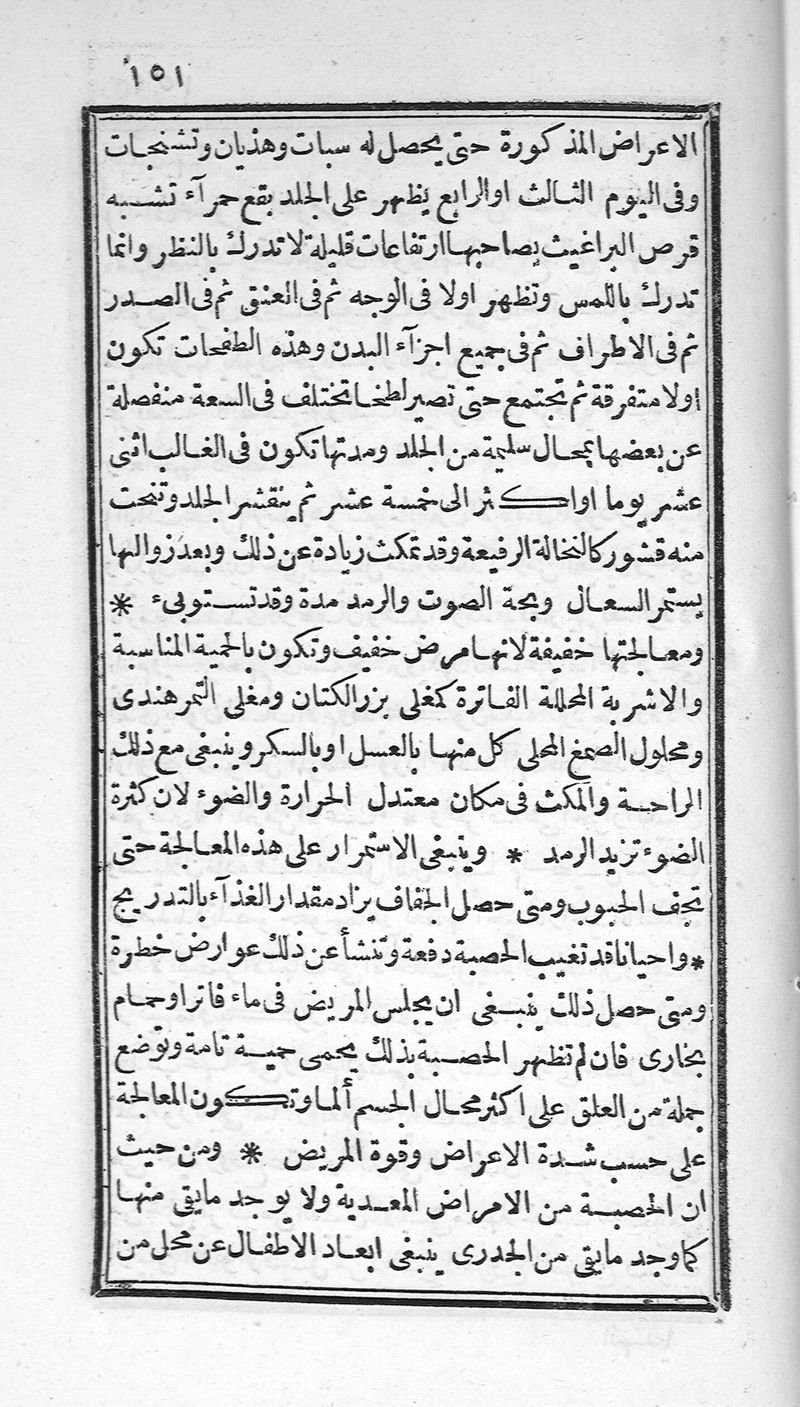 ١٥١
الاعراض المذكورة حتى يحصل له سبات وهذيان وتشنجات
وفى اليوم الثالث او الرابع يظهر على الجلد بقع حمرآء تشبه
قرص البراغيث يصاحبها ارتفاعات قليلة لا تدرك بالنظر وانما
تدرك باللمس وتظهر اولا فى الوجه ثم فى العنق ثم فى الصدر
ثم فى الاطراف ثم فى جميع اجزآء البدن وهذه الطفحات تكون
اولا متفرقة ثم تجتمع حتى تصير لطخا تختلف فى السعة منفصلة
عن بعضها بمحال سليمة من الجلد ومدتها تكون فى الغالب اثنى
عشر يوما او اكثر الى خمسة عشر ثم ينقشر الجلد وتنحت
منه قشور كالنخالة الرفيعة وقد تمكث زيادة عن ذلك وبعد زوالها
يستمر السعال وبحة الصوت والرمد مدة وقد تستوبىء *
ومعالجتها خفيفة لانها مرض خفيف وتكون بالحمية المناسبة
والاشربة المحللة الفاترة كمغلى بزر الكتان ومغلى التمر هندى
ومحلول الصمغ المحلى كل منها بالعسل او بالسكر وينبغى مع ذلك
الراحة والمكث فى مكان معتدل الحرارة والضوء لان كثرة
الضوء تزيد الرمد * وينبغى الاستمرار على هذه المعالجة حتى
تجف الحبوب ومتى حصل الجفاف يزاد مقدار الغذآء بالتدريج
* واحيانا قد تغيب الحصبة دفعة وتنشأ عن ذلك عوارض خطرة
ومتى حصل ذلك ينبغى ان يجلس المريض فى ماء فاتر او حمام
بخارى فان لم تظهر الحصبة بذلك يحمى حمية تامة وتوضع
جملة من العلق على اكثر محال الجسم ألما وتكون المعالجة
على حسب شدة الاعراض وقوة المريض * ومن حيث
ان الحصبة من الامراض المعدية ولا يوجد ما يقى منها
كما وجد ما يقى من الجدرى ينبغى ابعاد الاطفال عن محل من